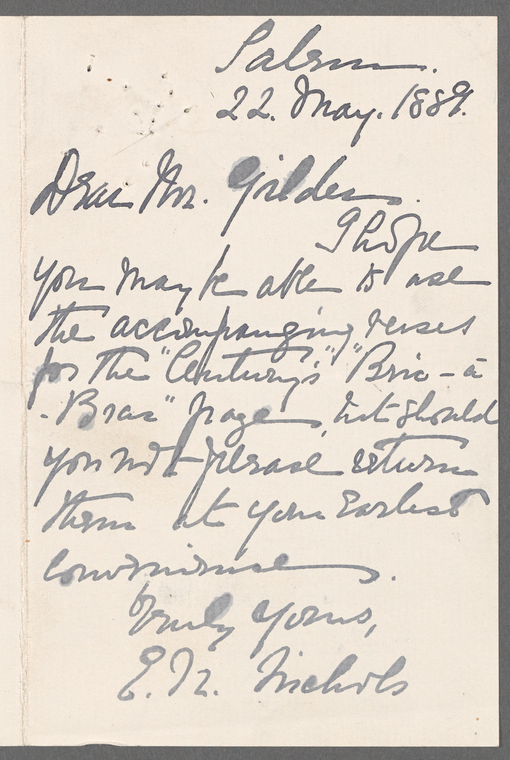 Salem.
22. May. 1889.
Dear Mr. Gilder.
I hope
you may be able to use
the accompanying verses
for the "Century's" "Bric-à
-Brac" page, but should
you not please return
them at your earliest
convenience.
Truly yours,
E. N. Nichols